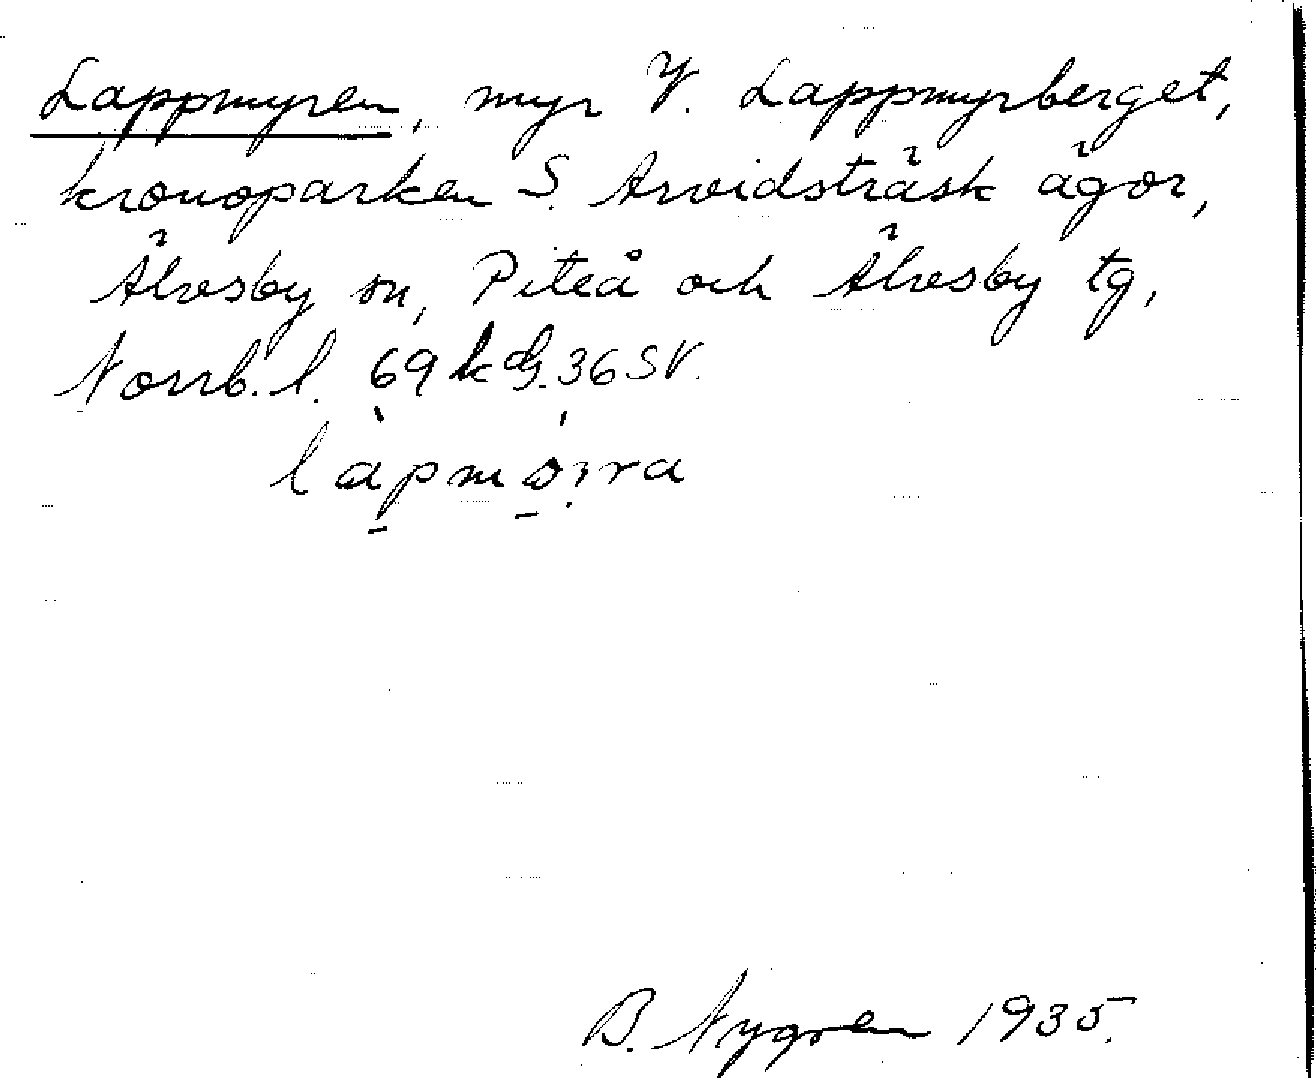 Lappmyren, myr V. Lappmyrberget,
kronoparken S. Arvidsträsk ägor,
Älvsby sn, Piteå och Älvsby tg,
Norrb. l. 69 k dG. 36 SV.
làpmø̀ıra
B. Nygren 1935.